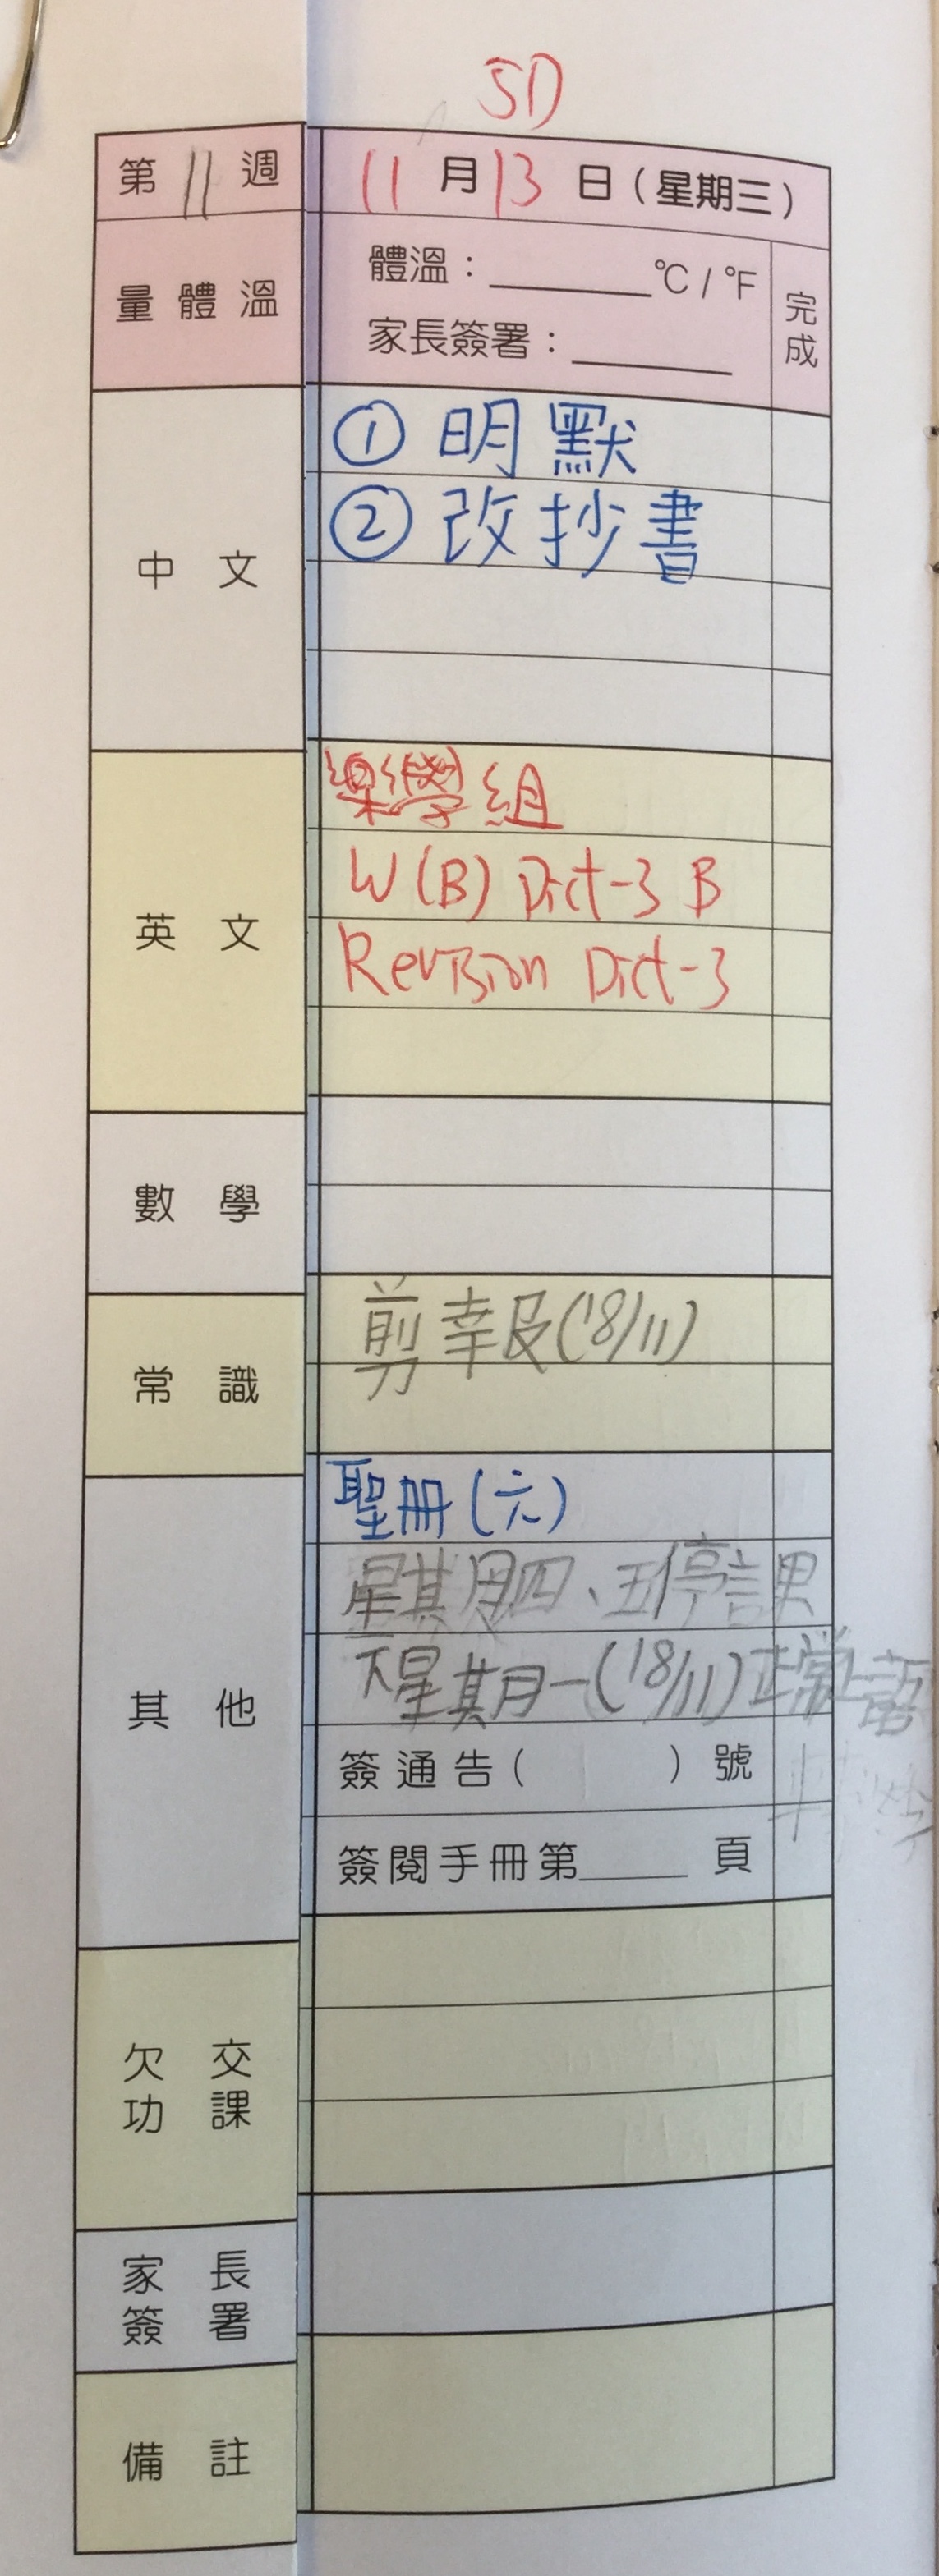 5D
第 11 週 11 月 13 日 ( 星期三 )
量體溫 體溫： ______ °C / °F 完成
家長簽署： ______
中文 ① 明默
② 改抄書
英文 樂學組
W(B) Dict-3 B
Revision Dict-3
數學
常識 剪報(18/11)
其他 聖冊(六)
星期四、五停課
下星期一(18/11)正常上課
簽通告 ( ) 號
簽閱手冊第 ______ 頁
欠交功課
家長簽署
備註